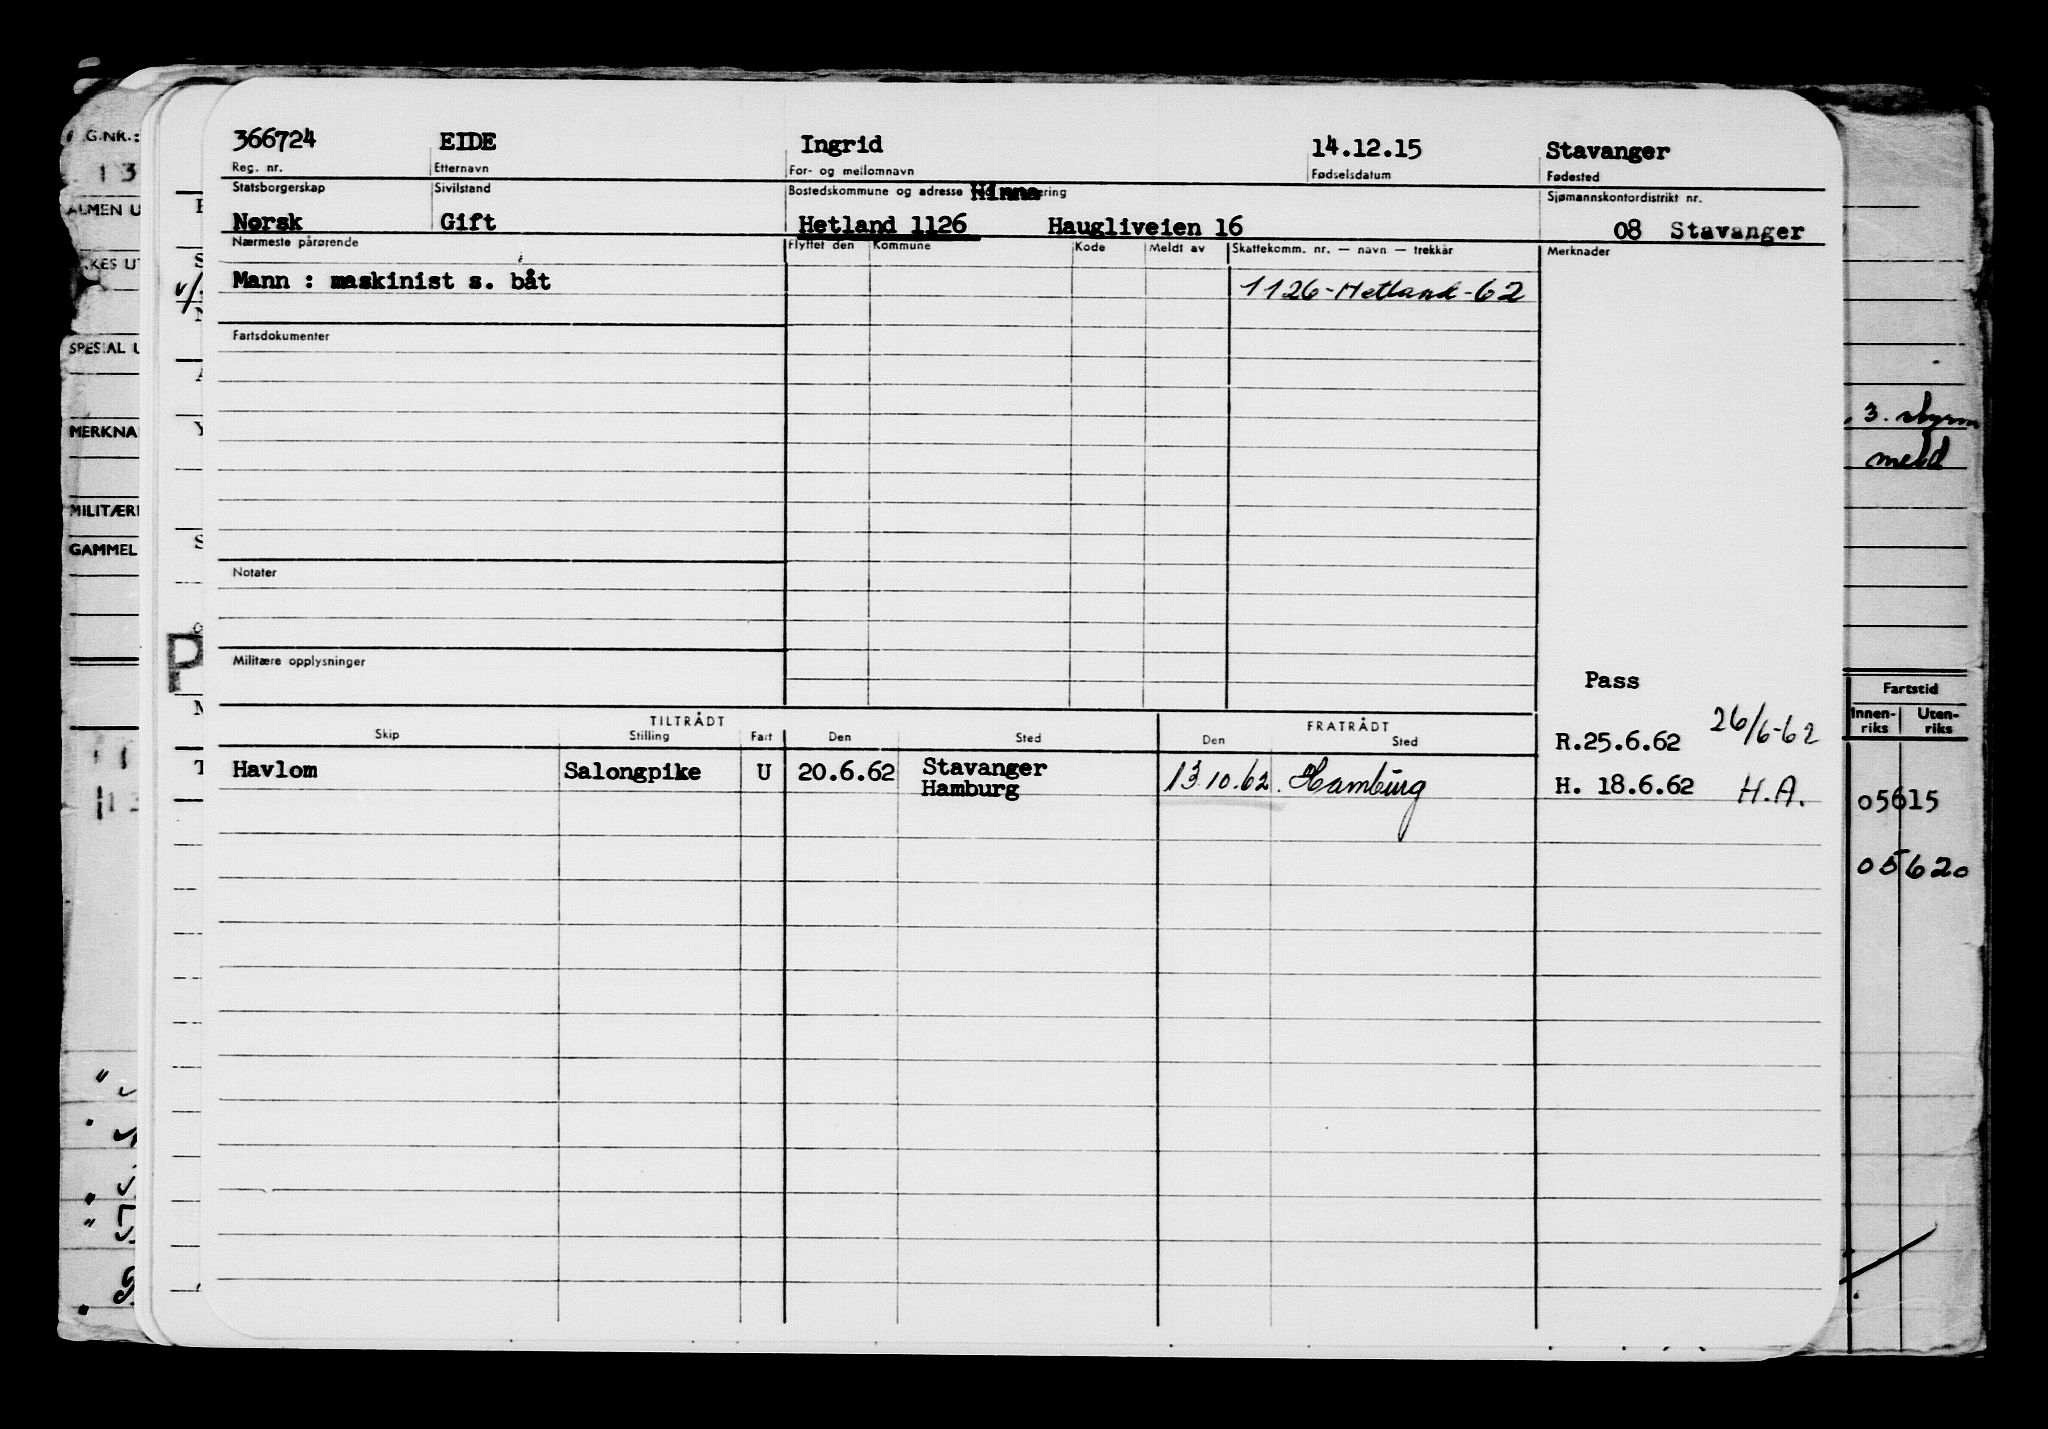 366724 EIDE Ingrid 14.12.15 Stavanger
Reg. nr. Etternavn For- og mellomnavn Fødselsdatum Fødested
Statsborgerskap Sivilstand Bostedskommune og adresse Hinna Sjømannskontordistrikt nr.
Norsk Gift Hetland 1126 Haugliveien 16 08 Stavanger
Nærmeste pårørende Flyttet den Kommune Kode Meldt av Skattekomm. nr. — navn — trekkår Merknader
Mann : maskinist s. båt 1126-Hetland-62
Fartsdokumenter
Notater
Militære opplysninger
Pass
TILTRÅDT FRATRÅDT
Skip Stilling Fart Den Sted Den Sted
R.25.6.62 26/6-62
Havlom Salongpike U 20.6.62 Stavanger 13.10.62. Hamburg
Hamburg H. 18.6.62 H.A.
G.NR.:
13
ALMEN U
KES UT
SPESIAL U
MERKNA
MILITÆRE
GAMMEL
P
3. styrm
meld
Fartstid
Innen- Uten-
riks riks
05615
05620